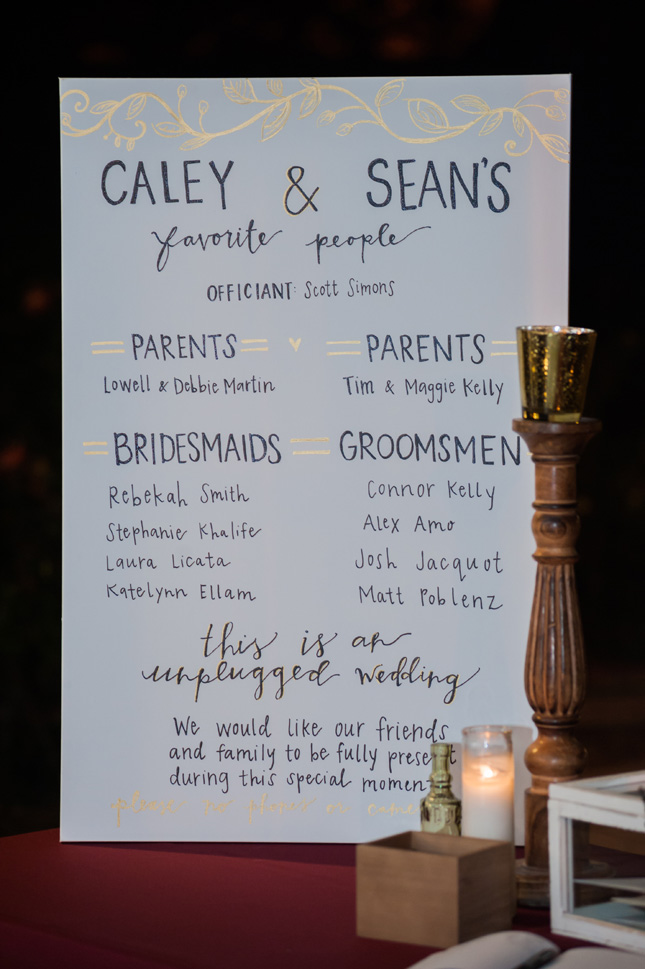 CALEY & SEAN'S
favorite people
OFFICIANT: Scott Simons
PARENTS PARENTS
Lowell & Debbie Martin Tim & Maggie Kelly
BRIDESMAIDS GROOMSMEN
Rebekah Smith Connor Kelly
Stephanie Khalife Alex Amo
Laura Licata Josh Jacquot
Katelynn Ellam Matt Poblenz
this is an
unplugged wedding
We would like our friends
and family to be fully present
during this special moment
please no phones or